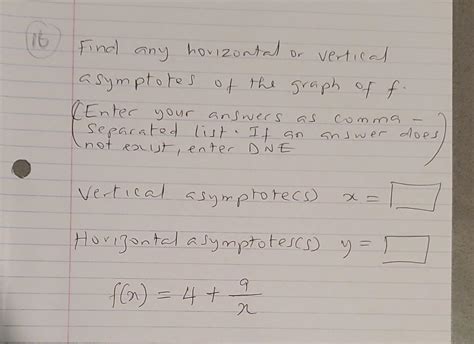 16
Find any horizontal or vertical
asymptotes of the graph of f.
(Enter your answers as comma -
separated list. If an answer does
not exist, enter DNE)
Vertical asymptote(s) x =
Horizontal asymptotes(s) y =
f(x) = 4 + 9/x